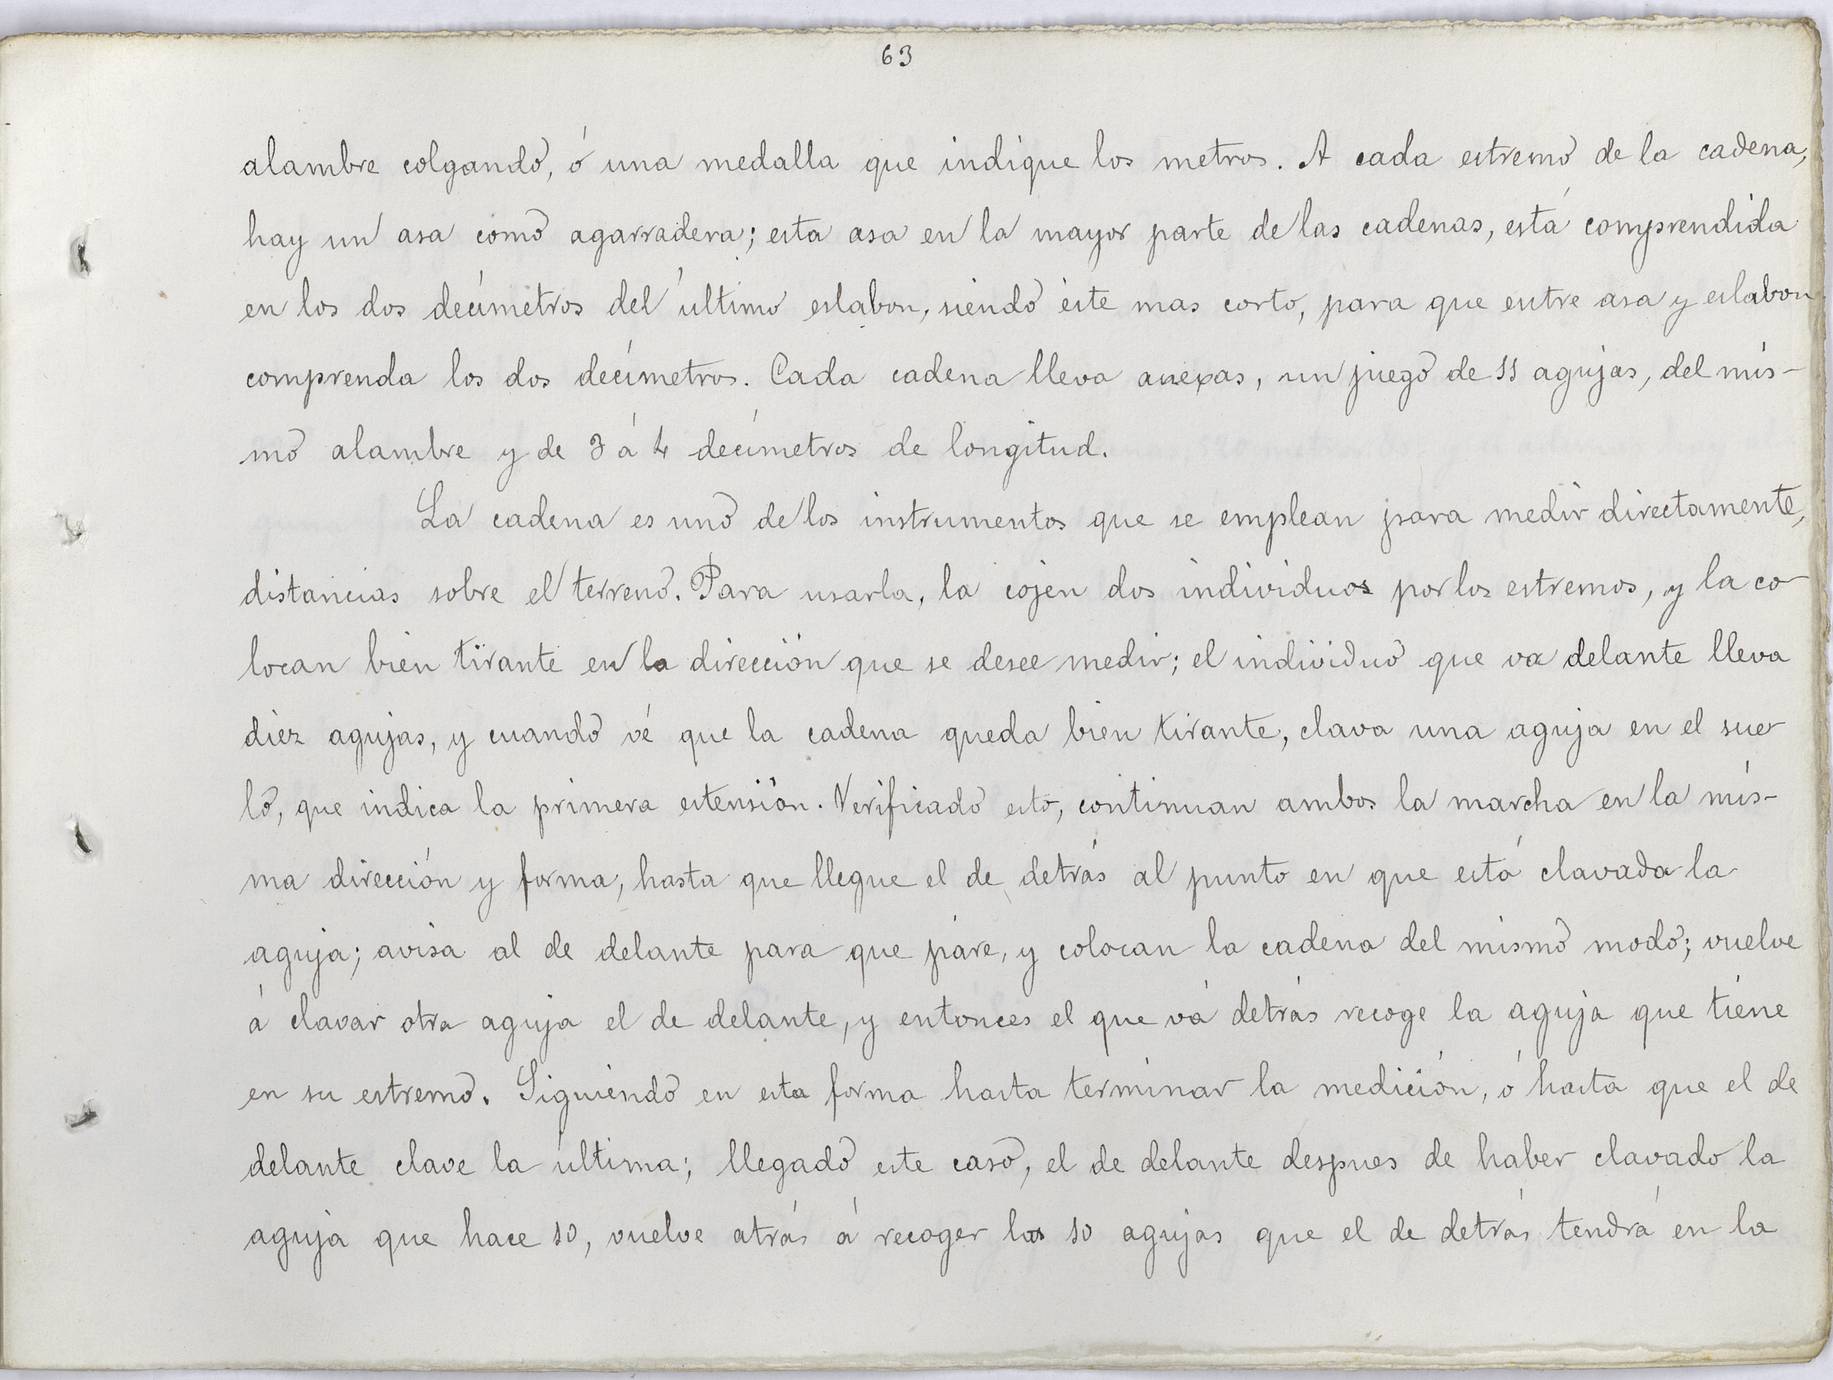 63
alambre colgando, ó una medalla que indique los metros. A cada estremo de la cadena,
hay un asa como agarradera; esta asa en la mayor parte de las cadenas, está comprendida
en los dos decímetros del último eslabon, siendo éste mas corto, para que entre asa y eslabon
comprenda los dos decímetros. Cada cadena lleva anexas, un juego de 11 agujas, del mis-
mo alambre y de 3 á 4 decímetros de longitud.
La cadena es uno de los instrumentos que se emplean para medir directamente,
distancias sobre el terreno. Para usarla, la cojen dos individuos por los estremos, y la co-
locan bien tirante en la dirección que se desee medir; el individuo que va delante lleva
diez agujas, y cuando vé que la cadena queda bien tirante, clava una aguja en el sue-
lo, que indica la primera estensión. Verificado esto, continuan ambos la marcha en la mis-
ma dirección y forma, hasta que llegue el de detrás al punto en que está clavada la
aguja; avisa al de delante para que páre, y colocan la cadena del mismo modo; vuelve
á clavar otra aguja el de delante, y entonces el que vá detrás recoge la aguja que tiene
en su estremo. Siguiendo en esta forma hasta terminar la medición, ó hasta que el de
delante clave la última; llegado este caso, el de delante despues de haber clavado la
aguja que hace 10, vuelve atrás á recoger las 10 agujas que el de detrás tendrá en la